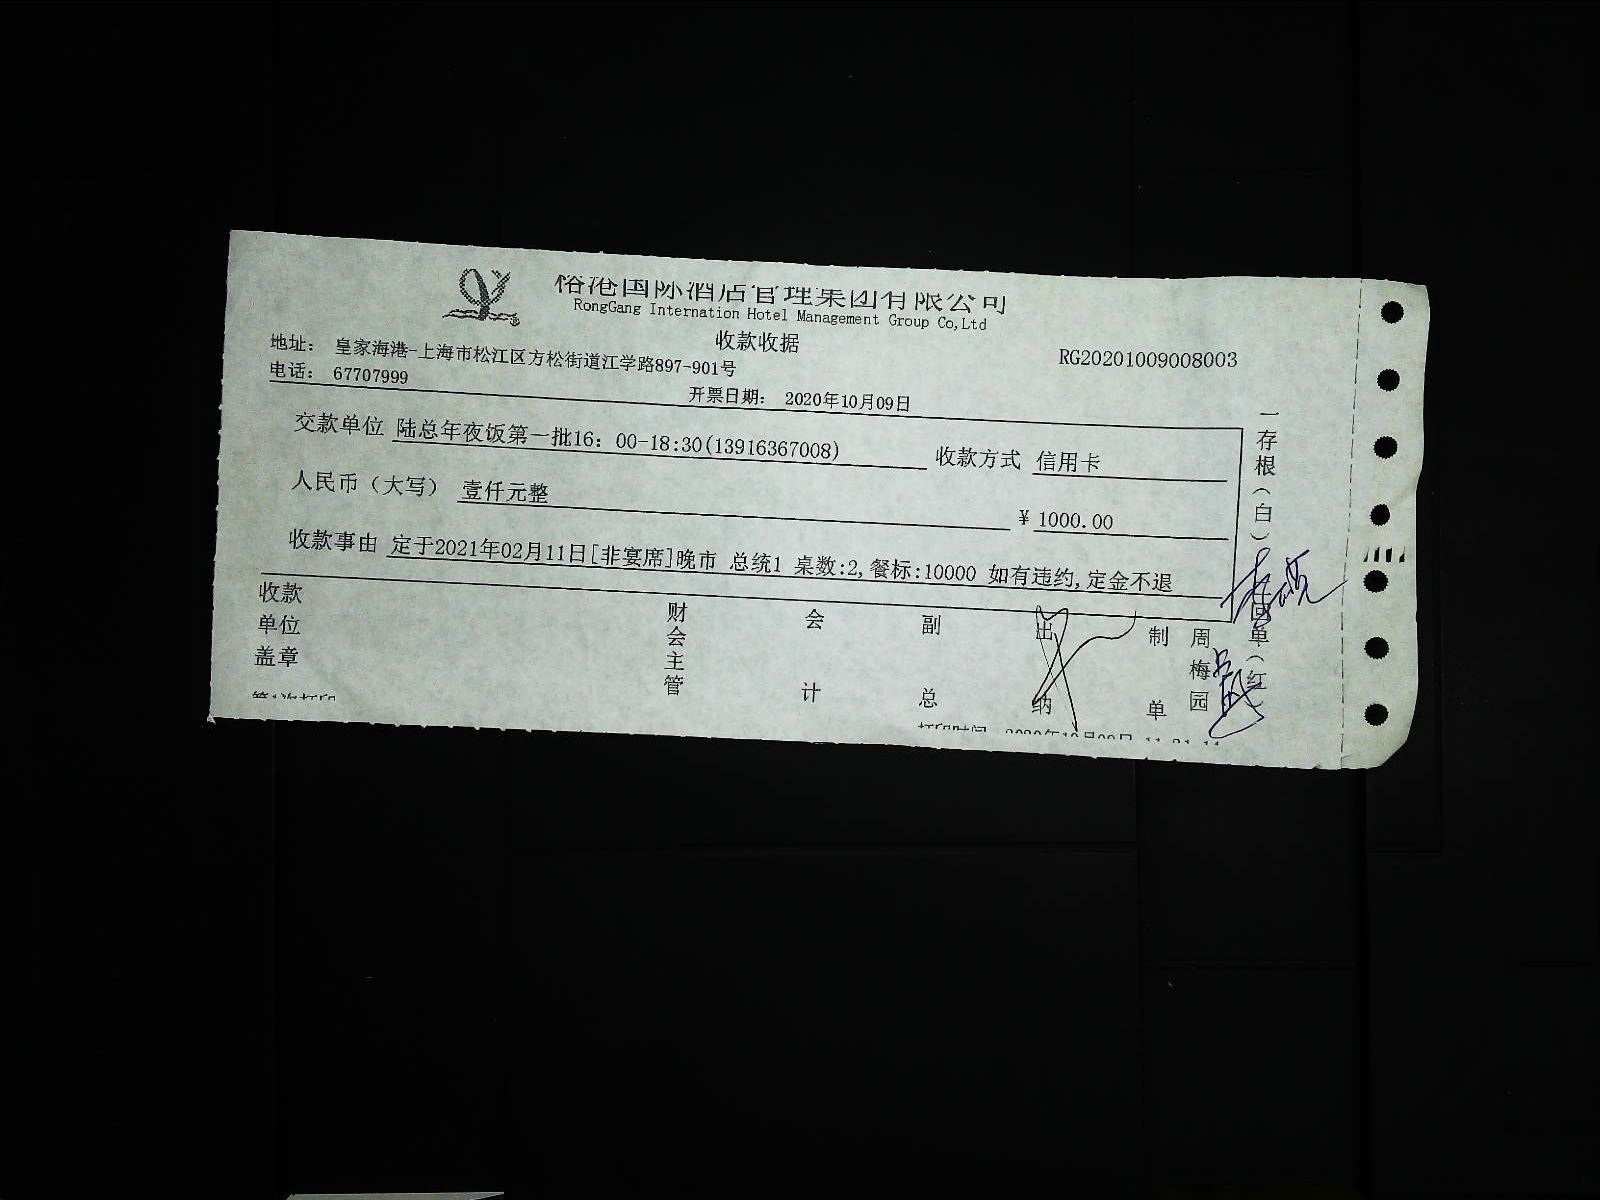 裕港国际酒店管理集团有限公司
RongGang Internation Hotel Management Group Co,Ltd
收款收据
地址： 皇家海港-上海市松江区方松街道江学路897-901号
RG20201009008003
电话： 67707999
开票日期： 2020年10月09日
交款单位 陆总年夜饭第一批16：00-18:30(13916367008) 收款方式 信用卡
人民币（大写） 壹仟元整 ¥ 1000.00
收款事由 定于2021年02月11日[非宴席]晚市 总统1 桌数:2,餐标:10000 如有违约,定金不退
收款单位盖章 财会主管 会计 副总 出纳 制单 周梅园
第1次打印
打印时间
一存根（白）
回单（红）